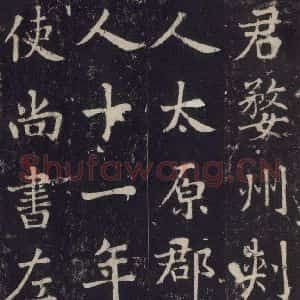 君婺州刺
人太原郡
人十一年
使尚書左
Shufawang.CN